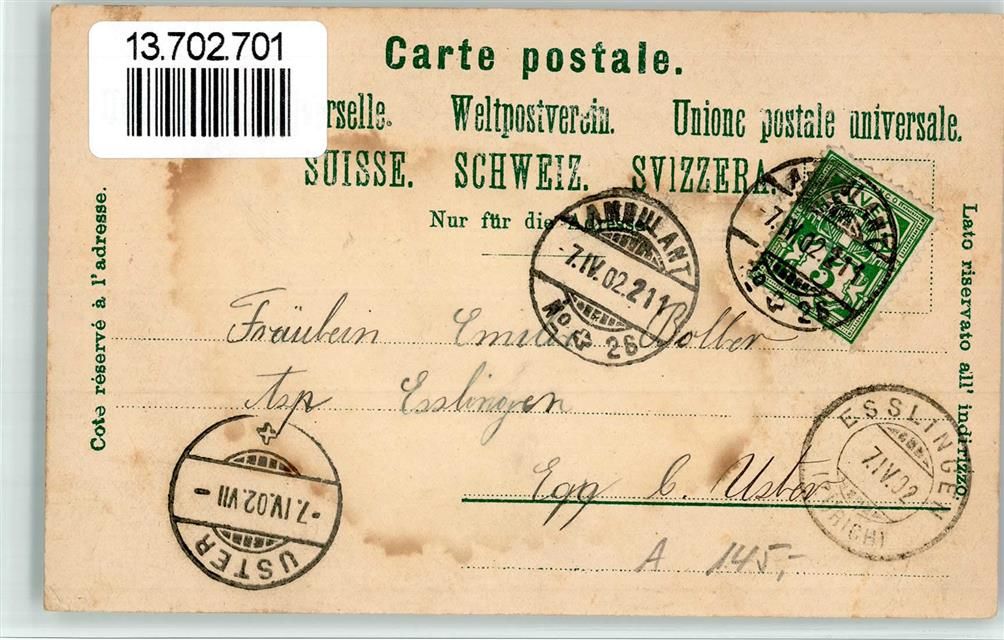 13.702.701
Carte postale.
rselle. Weltpostverein. Unione postale universale.
SUISSE. SCHWEIZ. SVIZZERA.
Nur für die Adresse
Côté réservé à l'adresse.
Lato riservato all' indirizzo
AMBULANT
-7.IV.02.211
No. 26
-7.IV.02.211
No. 26
5
Fräulein Bolber
Asp Esslingen
Egg b. Uster
ESSLINGEN
7.IV.02
(ZÜRICH)
-7.IV.02.VII-
USTER
A 145,-